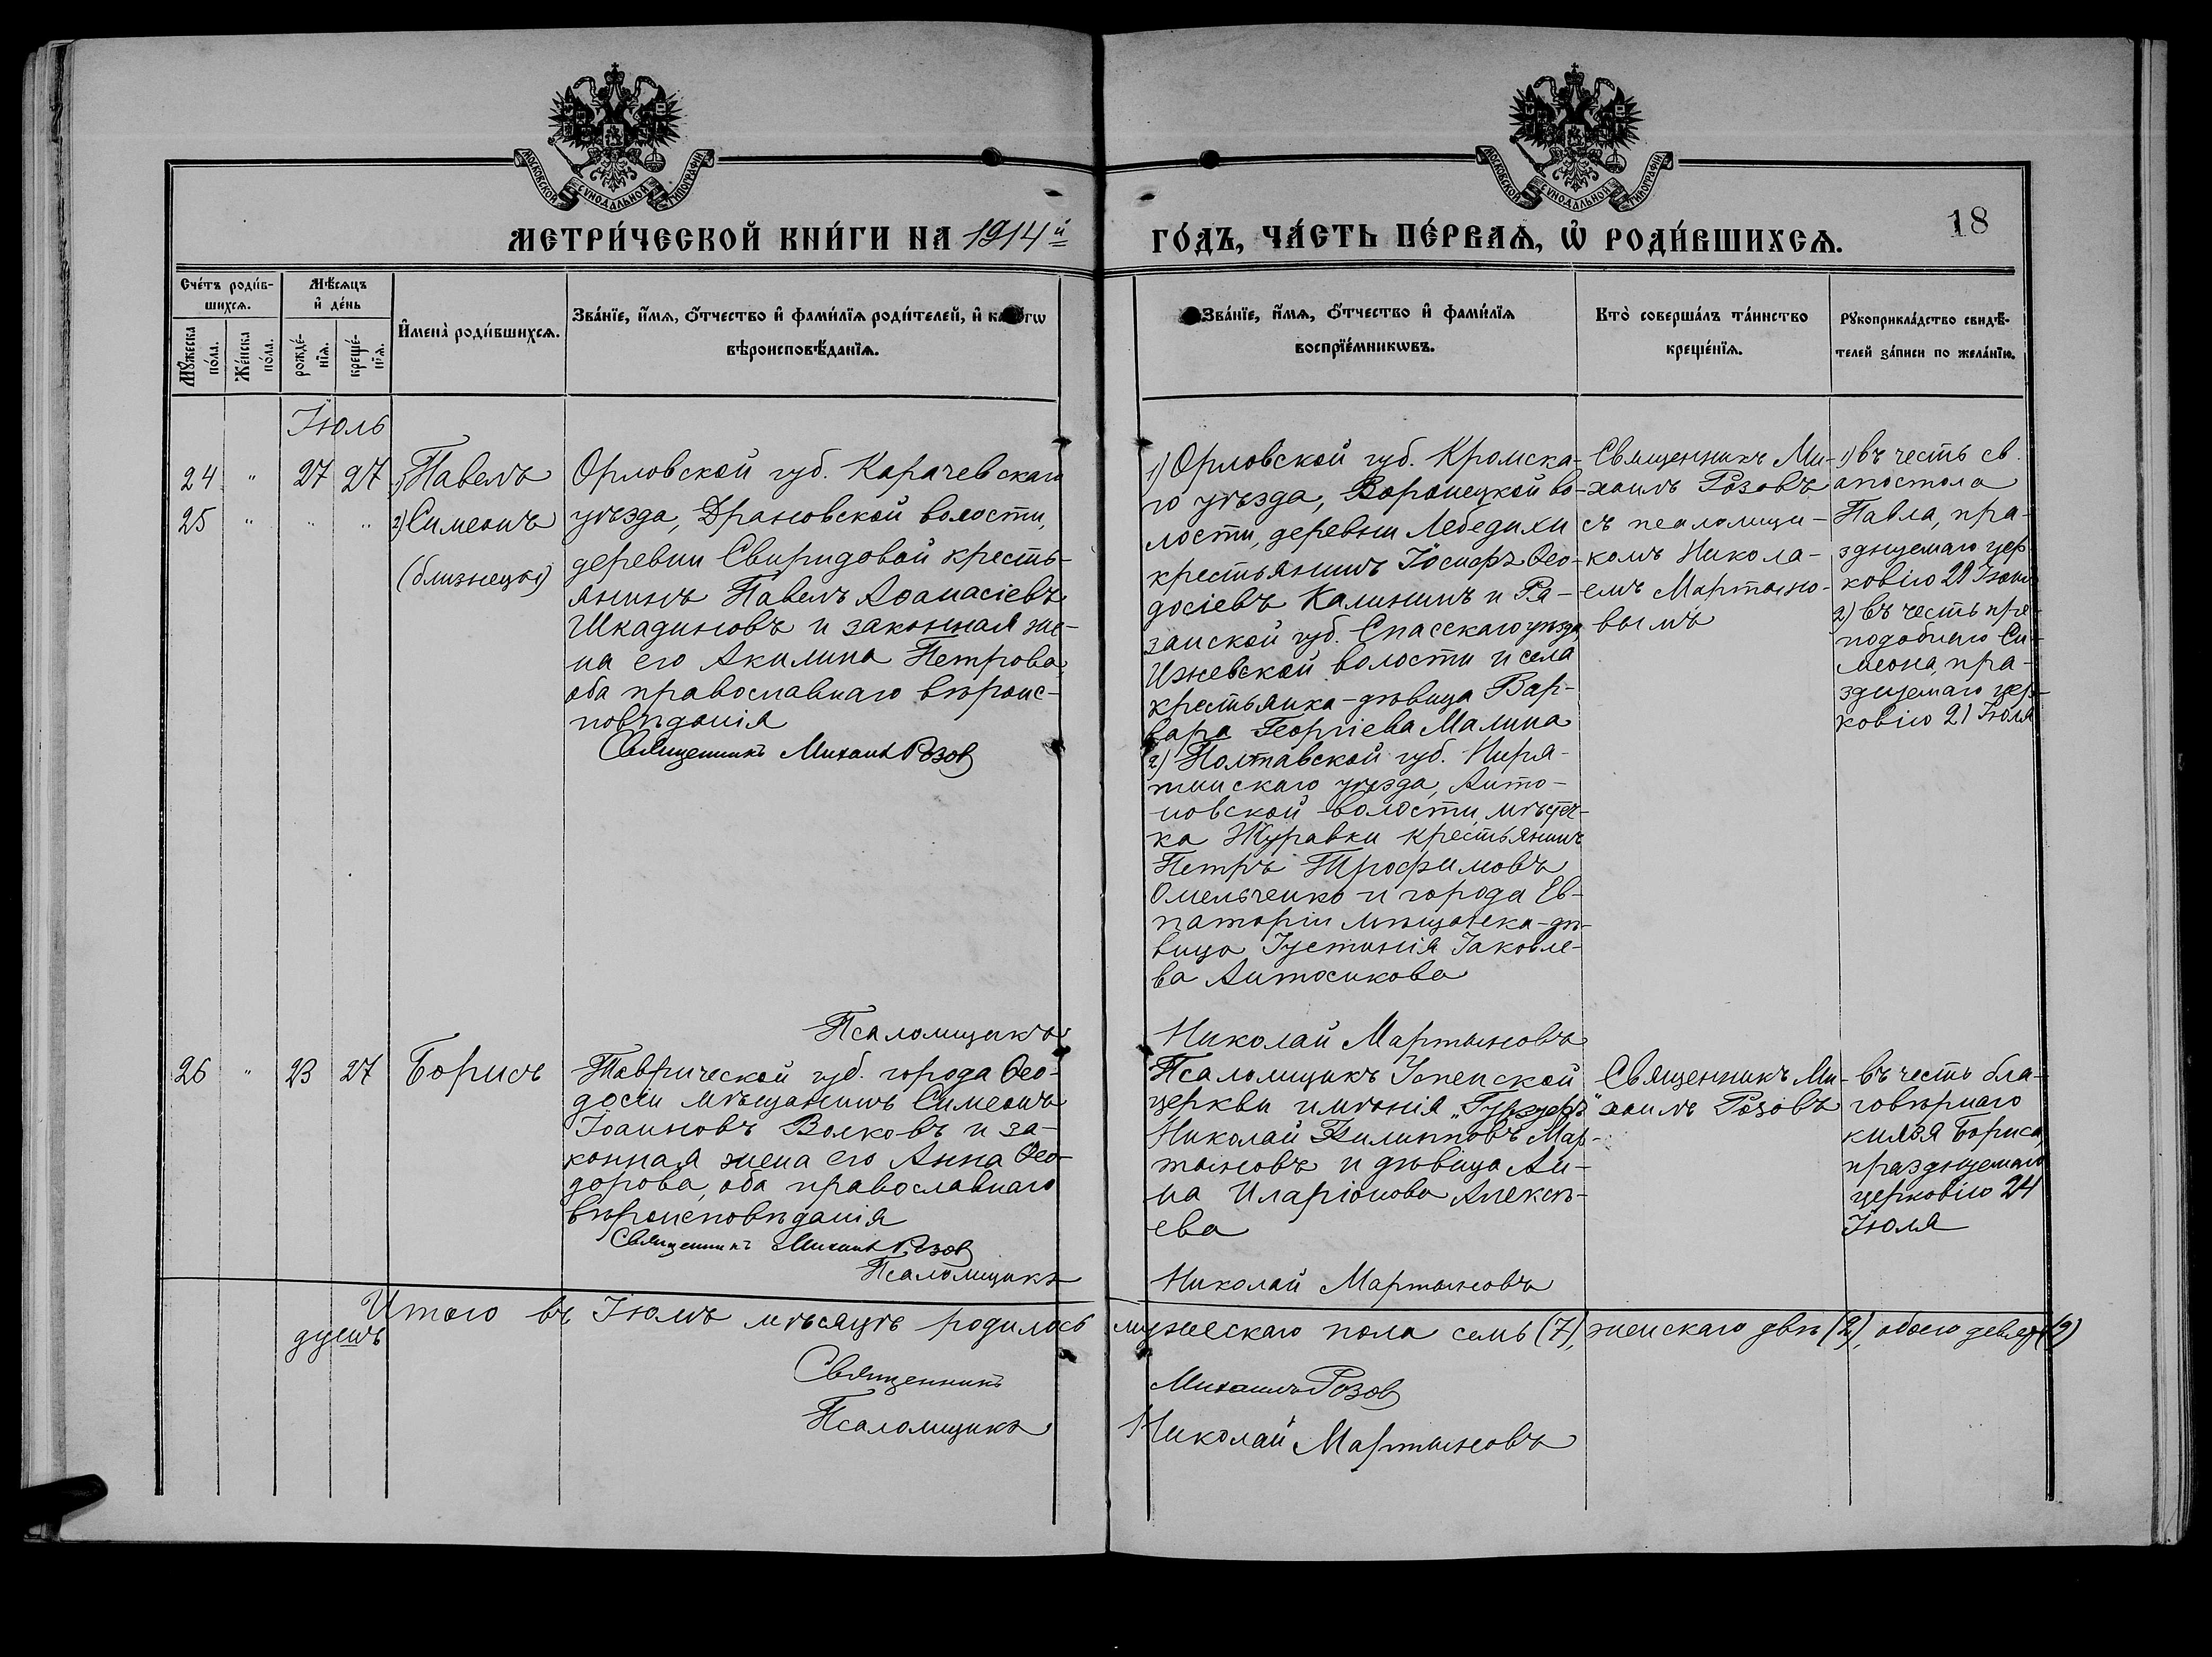 МОСКОВСКОЙ СѴНОДАЛЬНОЙ ТИПОГРАФІИ
МОСКОВСКОЙ СѴНОДАЛЬНОЙ ТИПОГРАФІИ
МЕТРИ́ЧЕСКОЙ КНИ́ГИ НА 1914й
ГО́ДЪ, ЧА́СТЬ ПЕ́РВАѦ, Ѽ РОДИ́ВШИХСѦ.
18
Сче́тъ роди́в-
шихсѧ.
Мꙋ́жеска
по́ла.
Же́нска
по́ла.
Мѣ́сѧцъ
и҆ де́нь
рожде́-
нїѧ.
креще́-
нїѧ.
И҆мена̀ роди́вшихсѧ.
Зва́нїе, и҆́мѧ, ѻ҆́тчество и҆ фами́лїѧ роди́телей, и҆ како́гѡ
вѣроисповѣ́данїѧ.
Зва́нїе, и҆́мѧ, ѻ҆́тчество и҆ фами́лїѧ
воспрїе́мникѡвъ.
Кто̀ соверша́лъ та́инство
креще́нїѧ.
Рꙋкоприкла́дство свидѣ́-
телей за́писи по жела́нїю.
Іюль
24 " 27 27
25 " " "
1) Павелъ
2) Симеонъ
(близнецы)
Орловской губ. Карачевскаго
уѣзда, Драновской волости,
деревни Свиридовой кресть-
янинъ Павелъ Аѳанасіевъ
Шкадиновъ и законная же-
на его Акилина Петрова,
оба православнаго вѣроис-
повѣданія
Священникъ Михаилъ Розов
1) Орловской губ. Кромска-
го уѣзда, Воронецкой во-
лости, деревни Лебедихи
крестьянинъ Іосифъ Ѳео-
досіевъ Калининъ и Ря-
занской губ. Спасскаго уѣзда
Ижевской волости и села
крестьянка-дѣвица Вар-
вара Георгіева Малина
2) Полтавской губ. Пиря-
тинскаго уѣзда, Анто-
новской волости, мѣстеч-
ка Журавки крестьянинъ
Петръ Трофимовъ
Омельченко и города Ев-
паторіи мѣщанка-дѣ-
вица Іустинія Іаковле-
ва Антосикова
Священникъ Ми-
хаилъ Розовъ
съ псаломщи-
комъ Никола-
емъ Мартыно-
вымъ
1) въ честь св.
апостола
Павла, пра-
зднуемаго цер-
ковію 29 Іюня
2) въ честь пре-
подобнаго Си-
меона, пра-
зднуемаго цер-
ковію 21 Іюля
Псаломщикъ Николай Мартыновъ
26 " 23 27 Борисъ
Таврической губ. города Ѳео-
досіи мѣщанинъ Симеонъ
Іоанновъ Волковъ и за-
конная жена его Анна Ѳео-
дорова, оба православнаго
вѣроисповѣданія
Священникъ Михаилъ Розов
Псаломщикъ
Псаломщикъ Успенской
церкви имѣнія „Гурзуфъ"
Николай Филипповъ Мар-
тыновъ и дѣвица Ан-
на Иларіонова Алексѣ-
ева
Николай Мартыновъ
Священникъ Ми-
хаилъ Розовъ
въ честь бла-
говѣрнаго
князя Бориса,
празднуемаго
церковію 24
Іюля
Итого въ Іюлѣ мѣсяцѣ родилось мужескаго пола семь (7), женскаго двѣ (2), обоего девять (9)
душъ
Священникъ Михаилъ Розов
Псаломщикъ Николай Мартыновъ